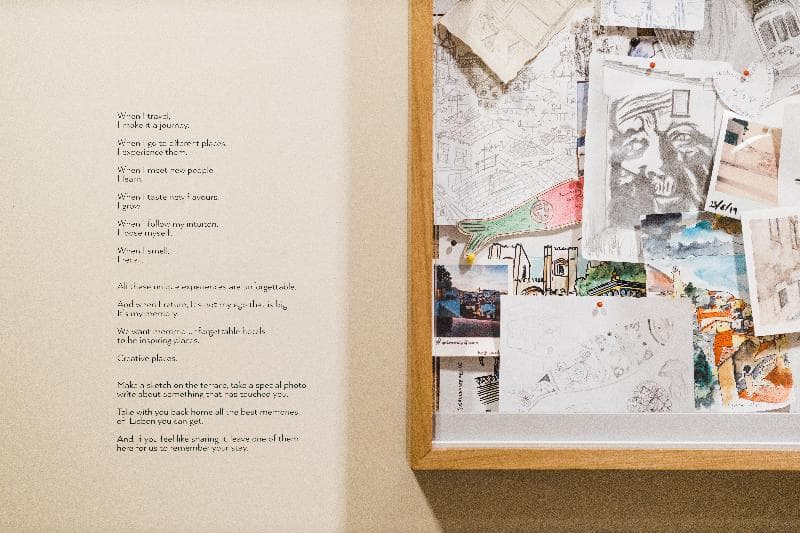 When I travel,
I make it a journey.
When I go to different places,
I experience them.
When I meet new people
I learn.
When I taste new flavours,
I grow.
When I follow my intuition,
I lose myself.
When I smell,
I
All these unique experiences are unforgettable.
And when I return, it's not my ego that is big,
It's my memory.
We want memmo unforgettable hotels
to be inspiring places.
Creative places.
Make a sketch on the terrace, take a special photo
write about something that has touched you.
Take with you back home all the best memories
of Lisbon you can get.
And, if you feel like sharing it, leave one of them
here for us to remember your stay.